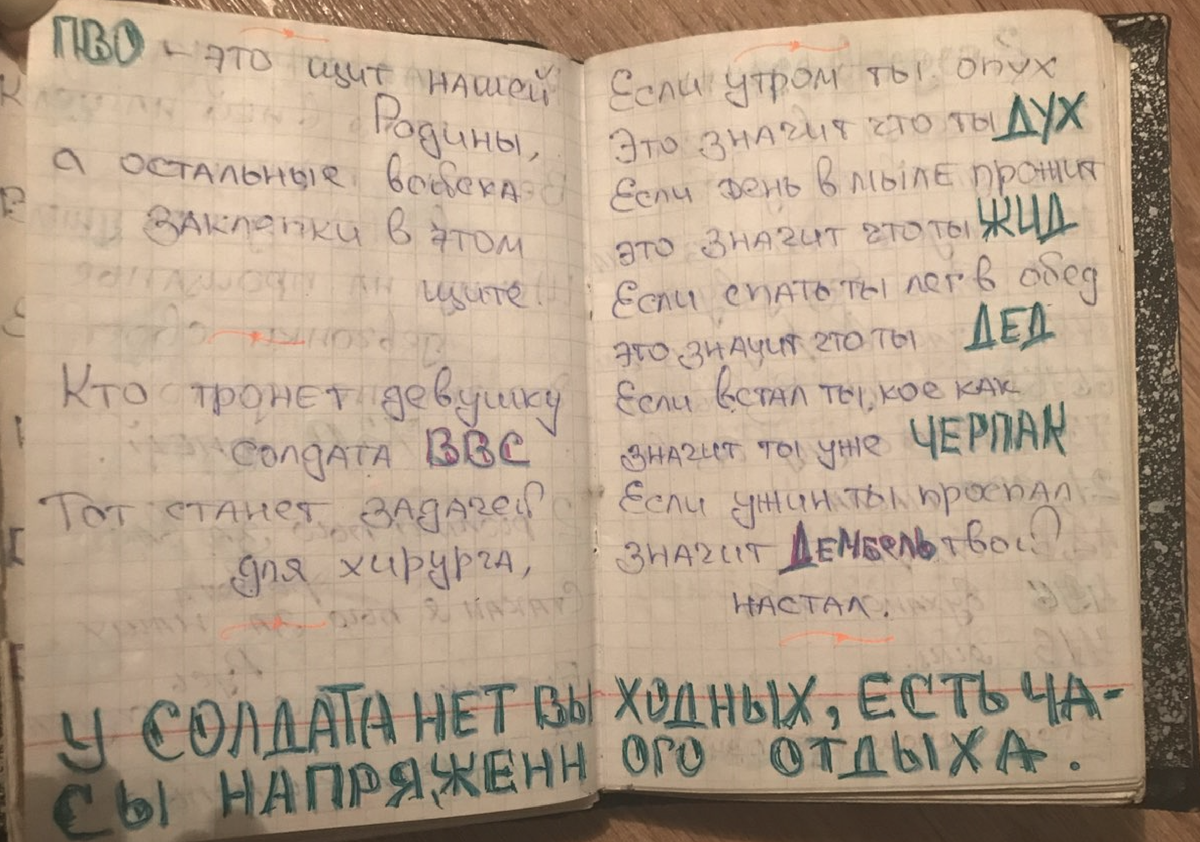 ПВО - это щит нашей
Родины,
а остальные войска
заклепки в этом
щите.
Кто тронет девушку
солдата ВВС
Тот станет задачей
для хирурга,
Если утром ты опух
Это значит что ты ДУХ
Если день в мыле прожит
это значит что ты ЖИД
Если спать ты лег в обед
это значит что ты ДЕД
Если встал ты, кое как
значит ты уже ЧЕРПАК
Если ужин ты проспал
значит ДЕМБЕЛЬ твой
настал.
У СОЛДАТА НЕТ ВЫХОДНЫХ, ЕСТЬ ЧА-
СЫ НАПРЯЖЕННОГО ОТДЫХА.